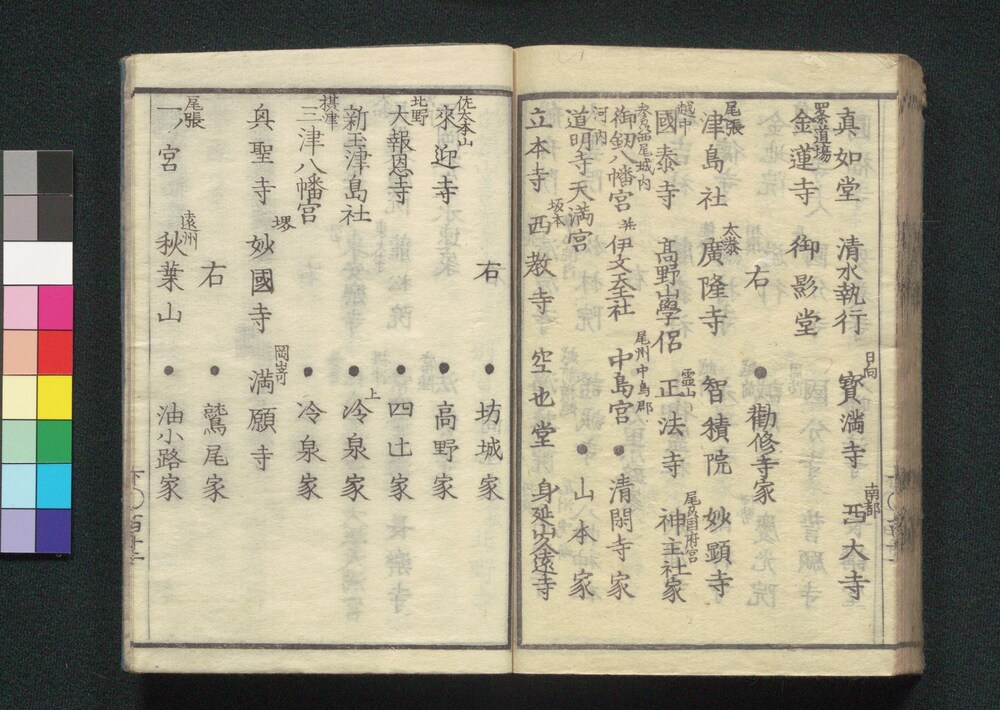 真如堂 清水執行 日向 寳満寺 南都 西大寺
四条道場 金蓮寺 御影堂
右 ●勸修寺家
尾張 津島社 太秦 廣隆寺 智積院 妙顕寺
越中 國泰寺 高野山學侶 霊山 正法寺 尾及国府宮 神主社家
参刕西尾城内 御釼八幡宮 并伊文天王社 尾州中島郡 中島宮 ●清閑寺家
河内 道明寺天満宮 ●山本家
立本寺 坂本 西教寺 空也堂 身延山久遠寺
右 ●坊城家
佐々木山 來迎寺 ●高野家
北野 大報恩寺 ●四辻家
新玉津島社 ●上冷泉家
摂津 三津八幡宮 ●冷泉家
真聖寺 堺 妙國寺 岡崎 満願寺
右 ●鷲尾家
尾張 一ノ宮 遠州 秋葉山 ●油小路家
下〇 百十二